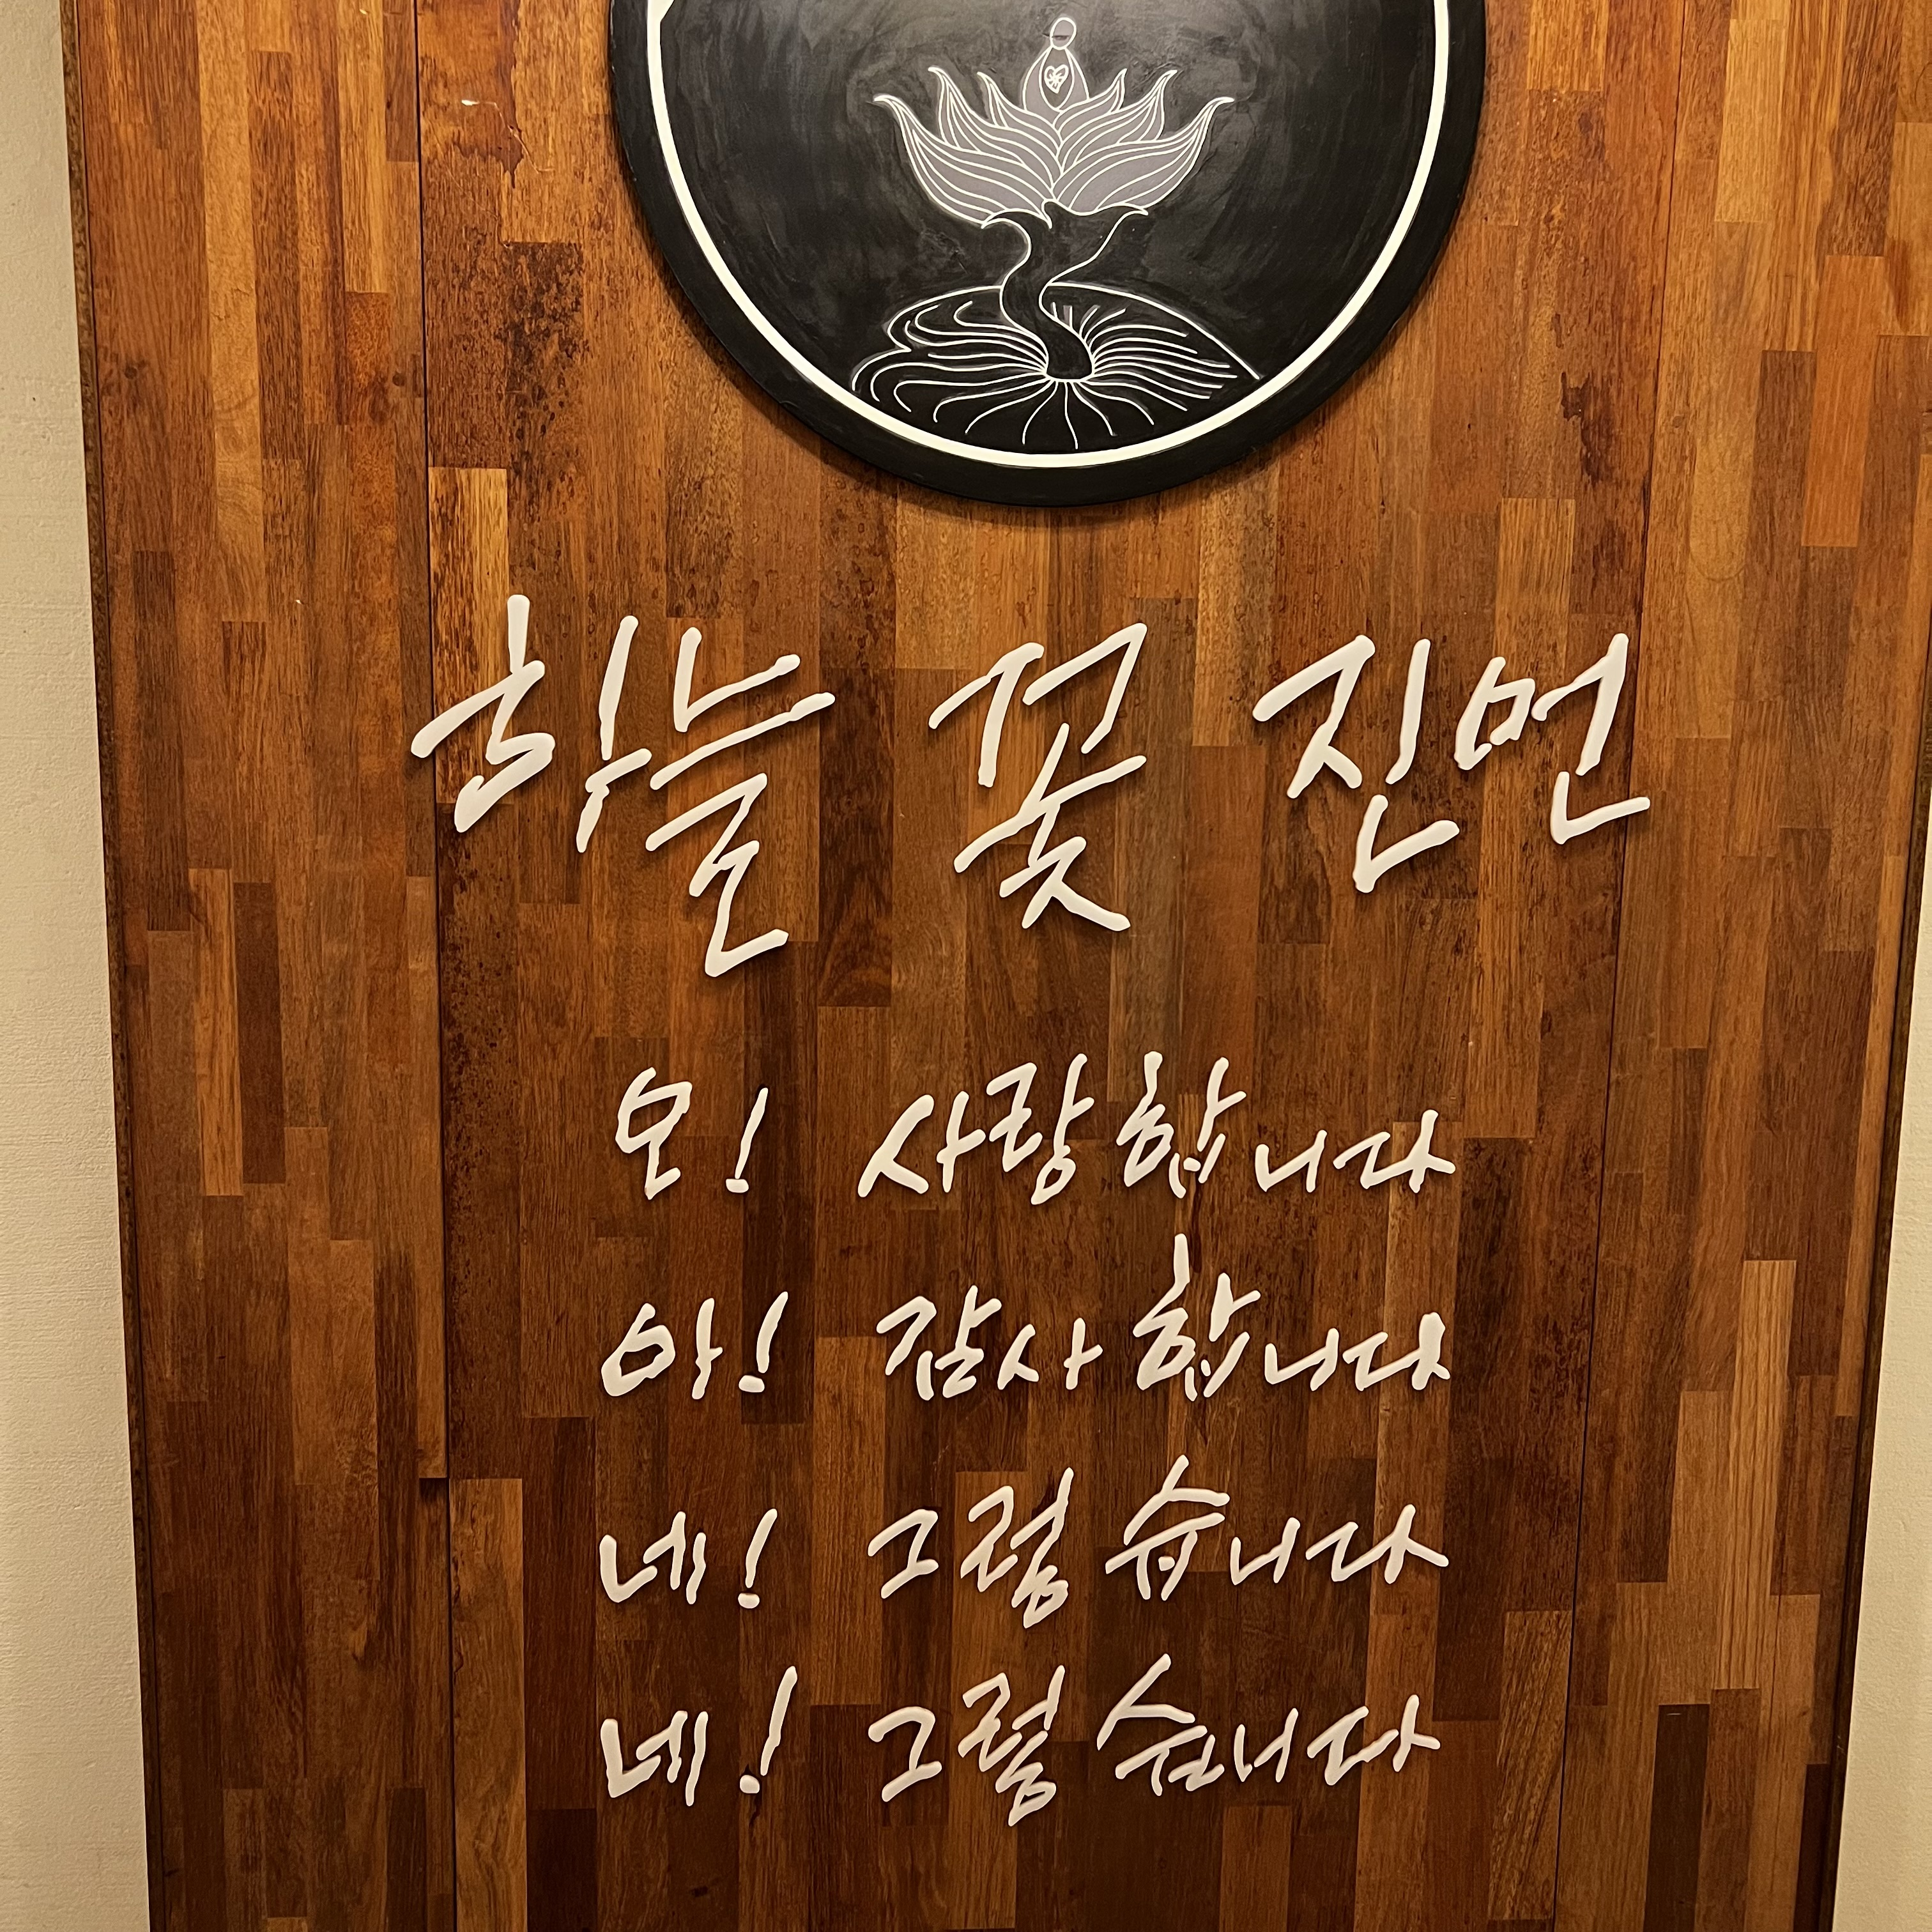 하늘 꽃 진언
오! 사랑합니다
아! 감사합니다
네! 그렇습니다
네! 그렇습니다